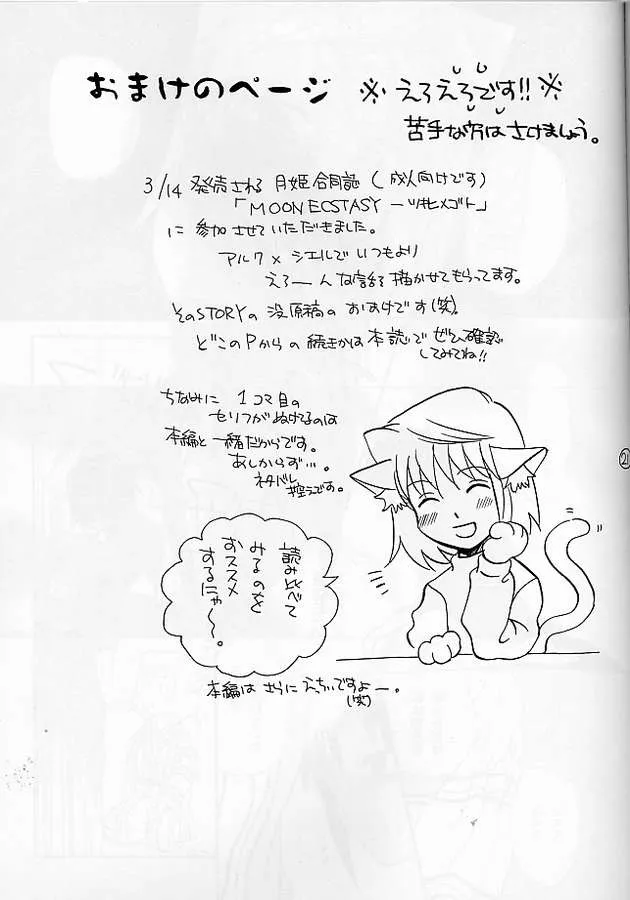 おまけのページ ※えろえろです!!※
苦手な方はさけましょう。
3/14 発売される 月姫合同誌 (成人向けです)
「MOON ECSTASY ーツキヒメゴト」
に 参加させていただきました。
アルク × シエルで いつもより
えろーんな話を描かせてもらってます。
そのSTORYの 没原稿の おまけです(笑)。
どこのPからの 続きかは 本誌で ぜひ確認
してみてね!!
ちなみに 1コマ目の
セリフがぬけてるのは
本編と一緒だからです。
あしからず…。
ネタバレ
控えです。
読み比べて
みるのを
おススメ
するにゃ〜。
本編は さらに えっちいですよー。
(笑)
2